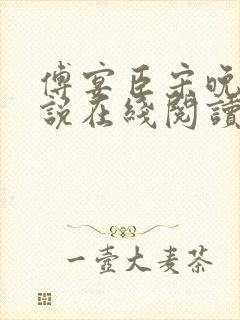 傅宴臣宋晚
說在綫閱讀
一壺大麥茶